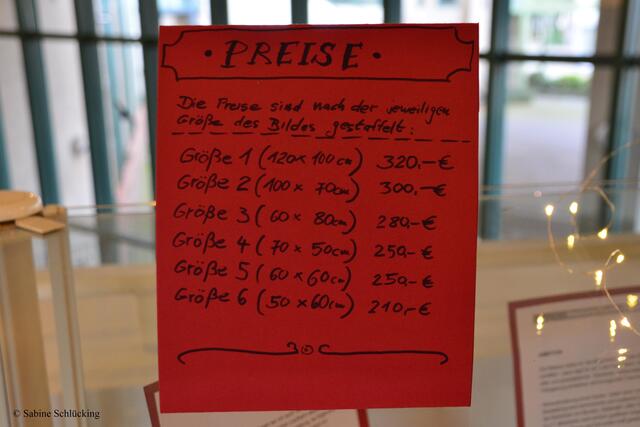 • PREISE •
Die Preise sind nach der jeweiligen
Größe des Bildes gestaffelt:
Größe 1 (120 x 100 cm) 320,– €
Größe 2 (100 x 70cm) 300,– €
Größe 3 (60 x 80cm) 280,– €
Größe 4 (70 x 50cm) 250,– €
Größe 5 (60 x 60cm) 250,– €
Größe 6 (50 x 60cm) 210,– €
© Sabine Schlücking